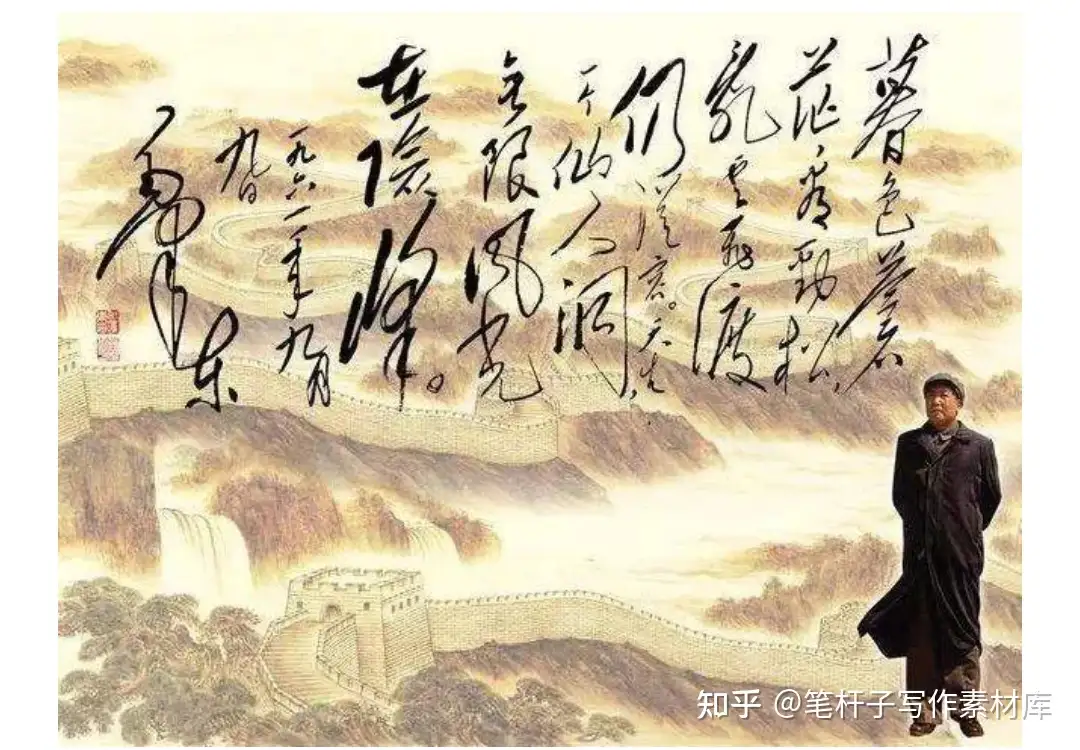 暮色蒼
茫看勁松,
亂云飛渡
仍從容。天生
一个仙人洞,
无限風光
在險峰。
一九六一年九月
九日
毛澤东
知乎 @笔杆子写作素材库